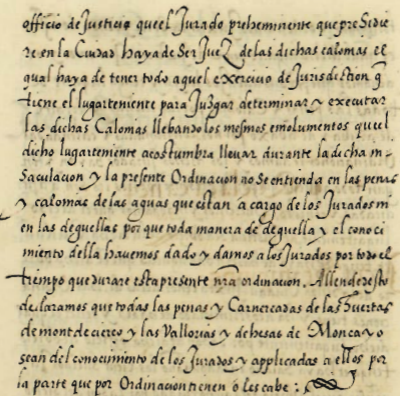 officio de Justicia que el Jurado preheminente que presidie
re en la Ciudad haya de ser Juez de las dichas calomas el
qual haya de tener todo aquel exercicio de Jurisdiction q̃
tiene el lugarteniente para Judgar determinar y executar
las dichas Calomas llebando los mesmos emolumentos que el
dicho lugarteniente acostumbra llevar durante la dicha in-
saculacion y la presente Ordinacion no se entienda en las penas
y calomas de las aguas que estan a cargo de los Jurados ni
en las deguellas por que toda manera de deguella y el conoci
miento della havemos dado y damos a los Jurados por todo el
tiempo que durare esta presente nr̃a ordinacion. Allende desto
declaramos que todas las penas y Carnereadas de las huertas
de mont de cierço y las Vallorias y dehesas de Moncayo
sean del conocimiento de los Jurados y applicadas a ellos por
la parte que por Ordinacion tienen o les cabe: